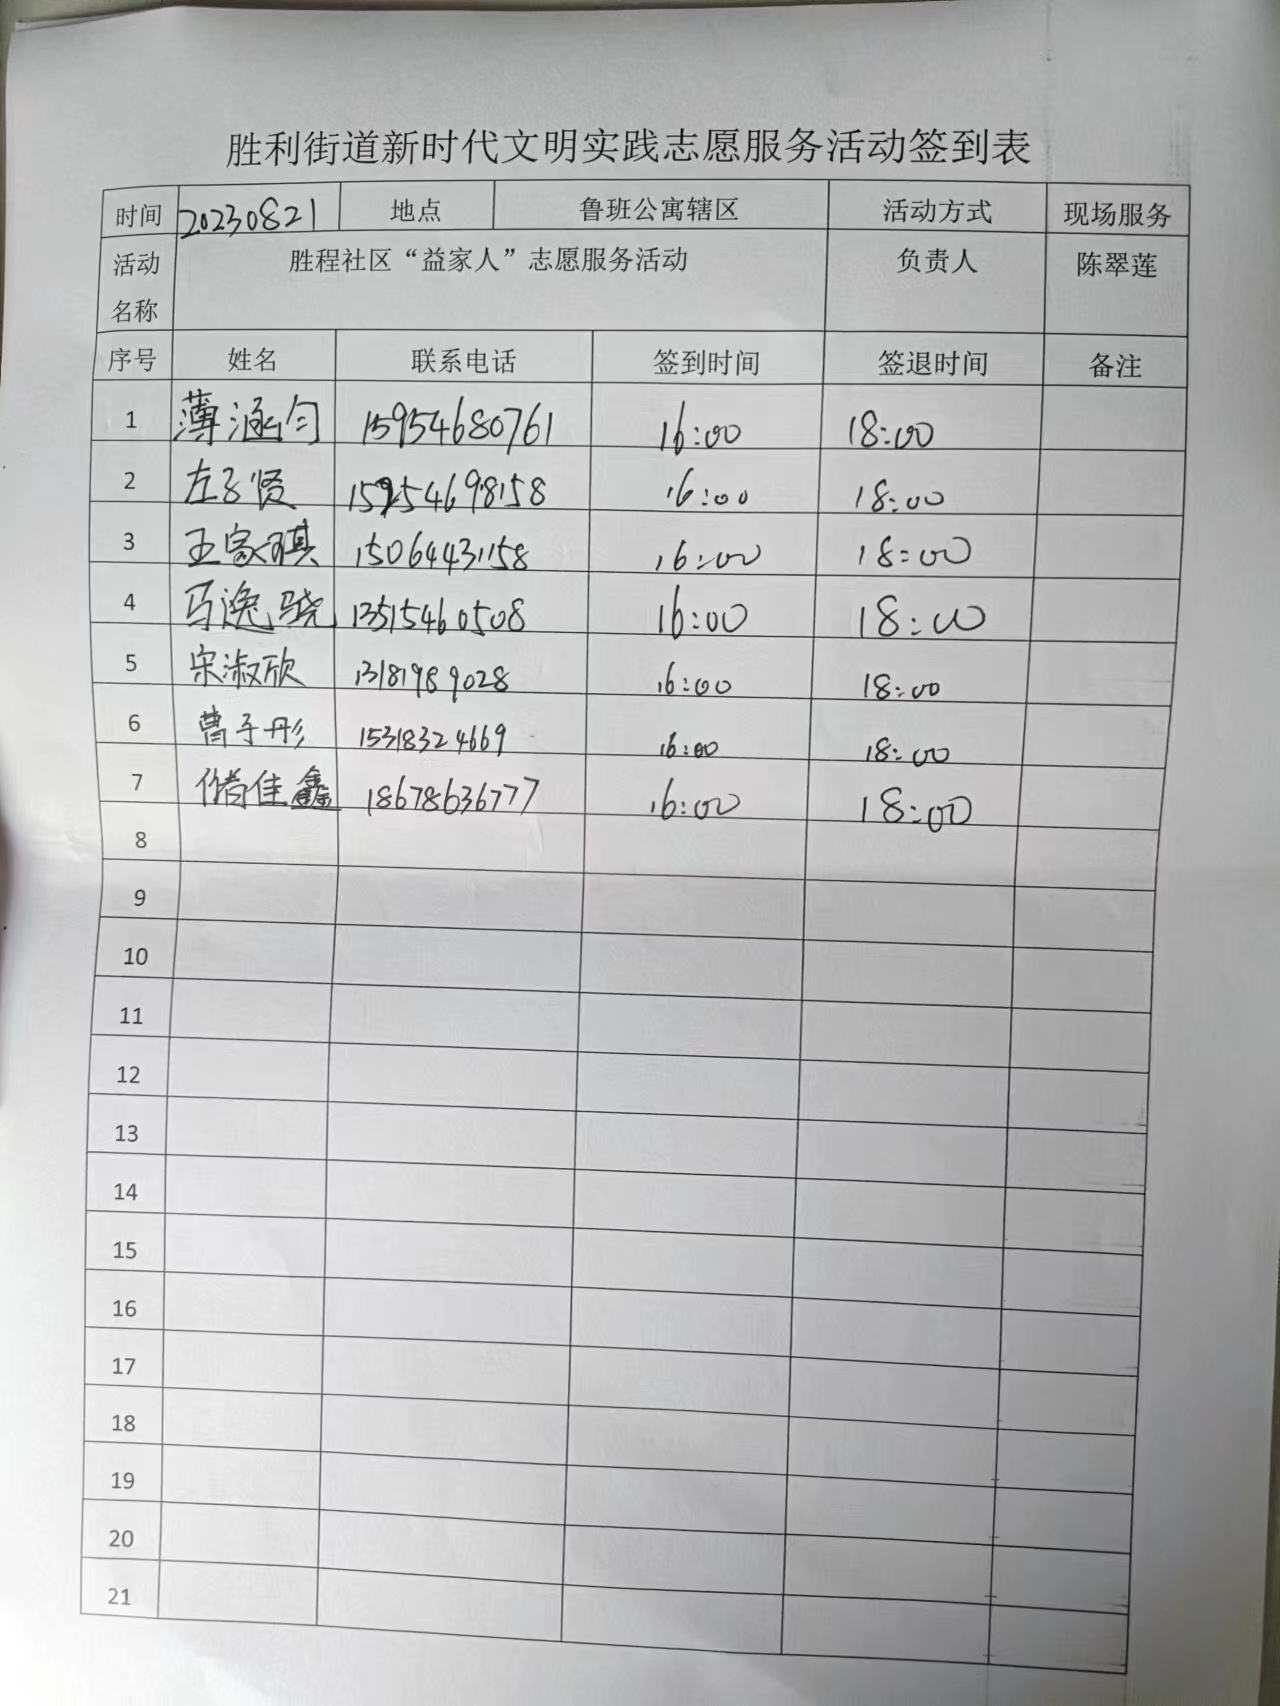 胜利街道新时代文明实践志愿服务活动签到表
时间 20230821 地点 鲁班公寓辖区 活动方式 现场服务
活动名称 胜程社区“益家人”志愿服务活动 负责人 陈翠莲
序号 姓名 联系电话 签到时间 签退时间 备注
1 薄涵匀 15954680761 16:00 18:00
2 左子贤 15954698158 16:00 18:00
3 王家琪 15064431158 16:00 18:00
4 马逸骁 13515460508 16:00 18:00
5 宋淑欣 13181989028 16:00 18:00
6 曹子彤 15318324669 16:00 18:00
7 佳鑫 18678636777 16:00 18:00
8
9
10
11
12
13
14
15
16
17
18
19
20
21